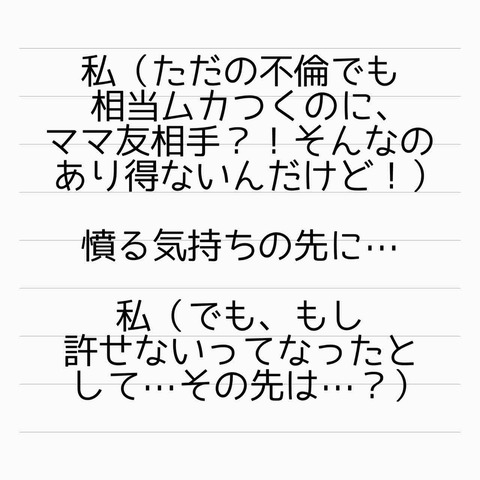 私（ただの不倫でも
相当ムカつくのに、
ママ友相手？！そんなの
あり得ないんだけど！）
憤る気持ちの先に…
私（でも、もし
許せないってなったと
して…その先は…？）